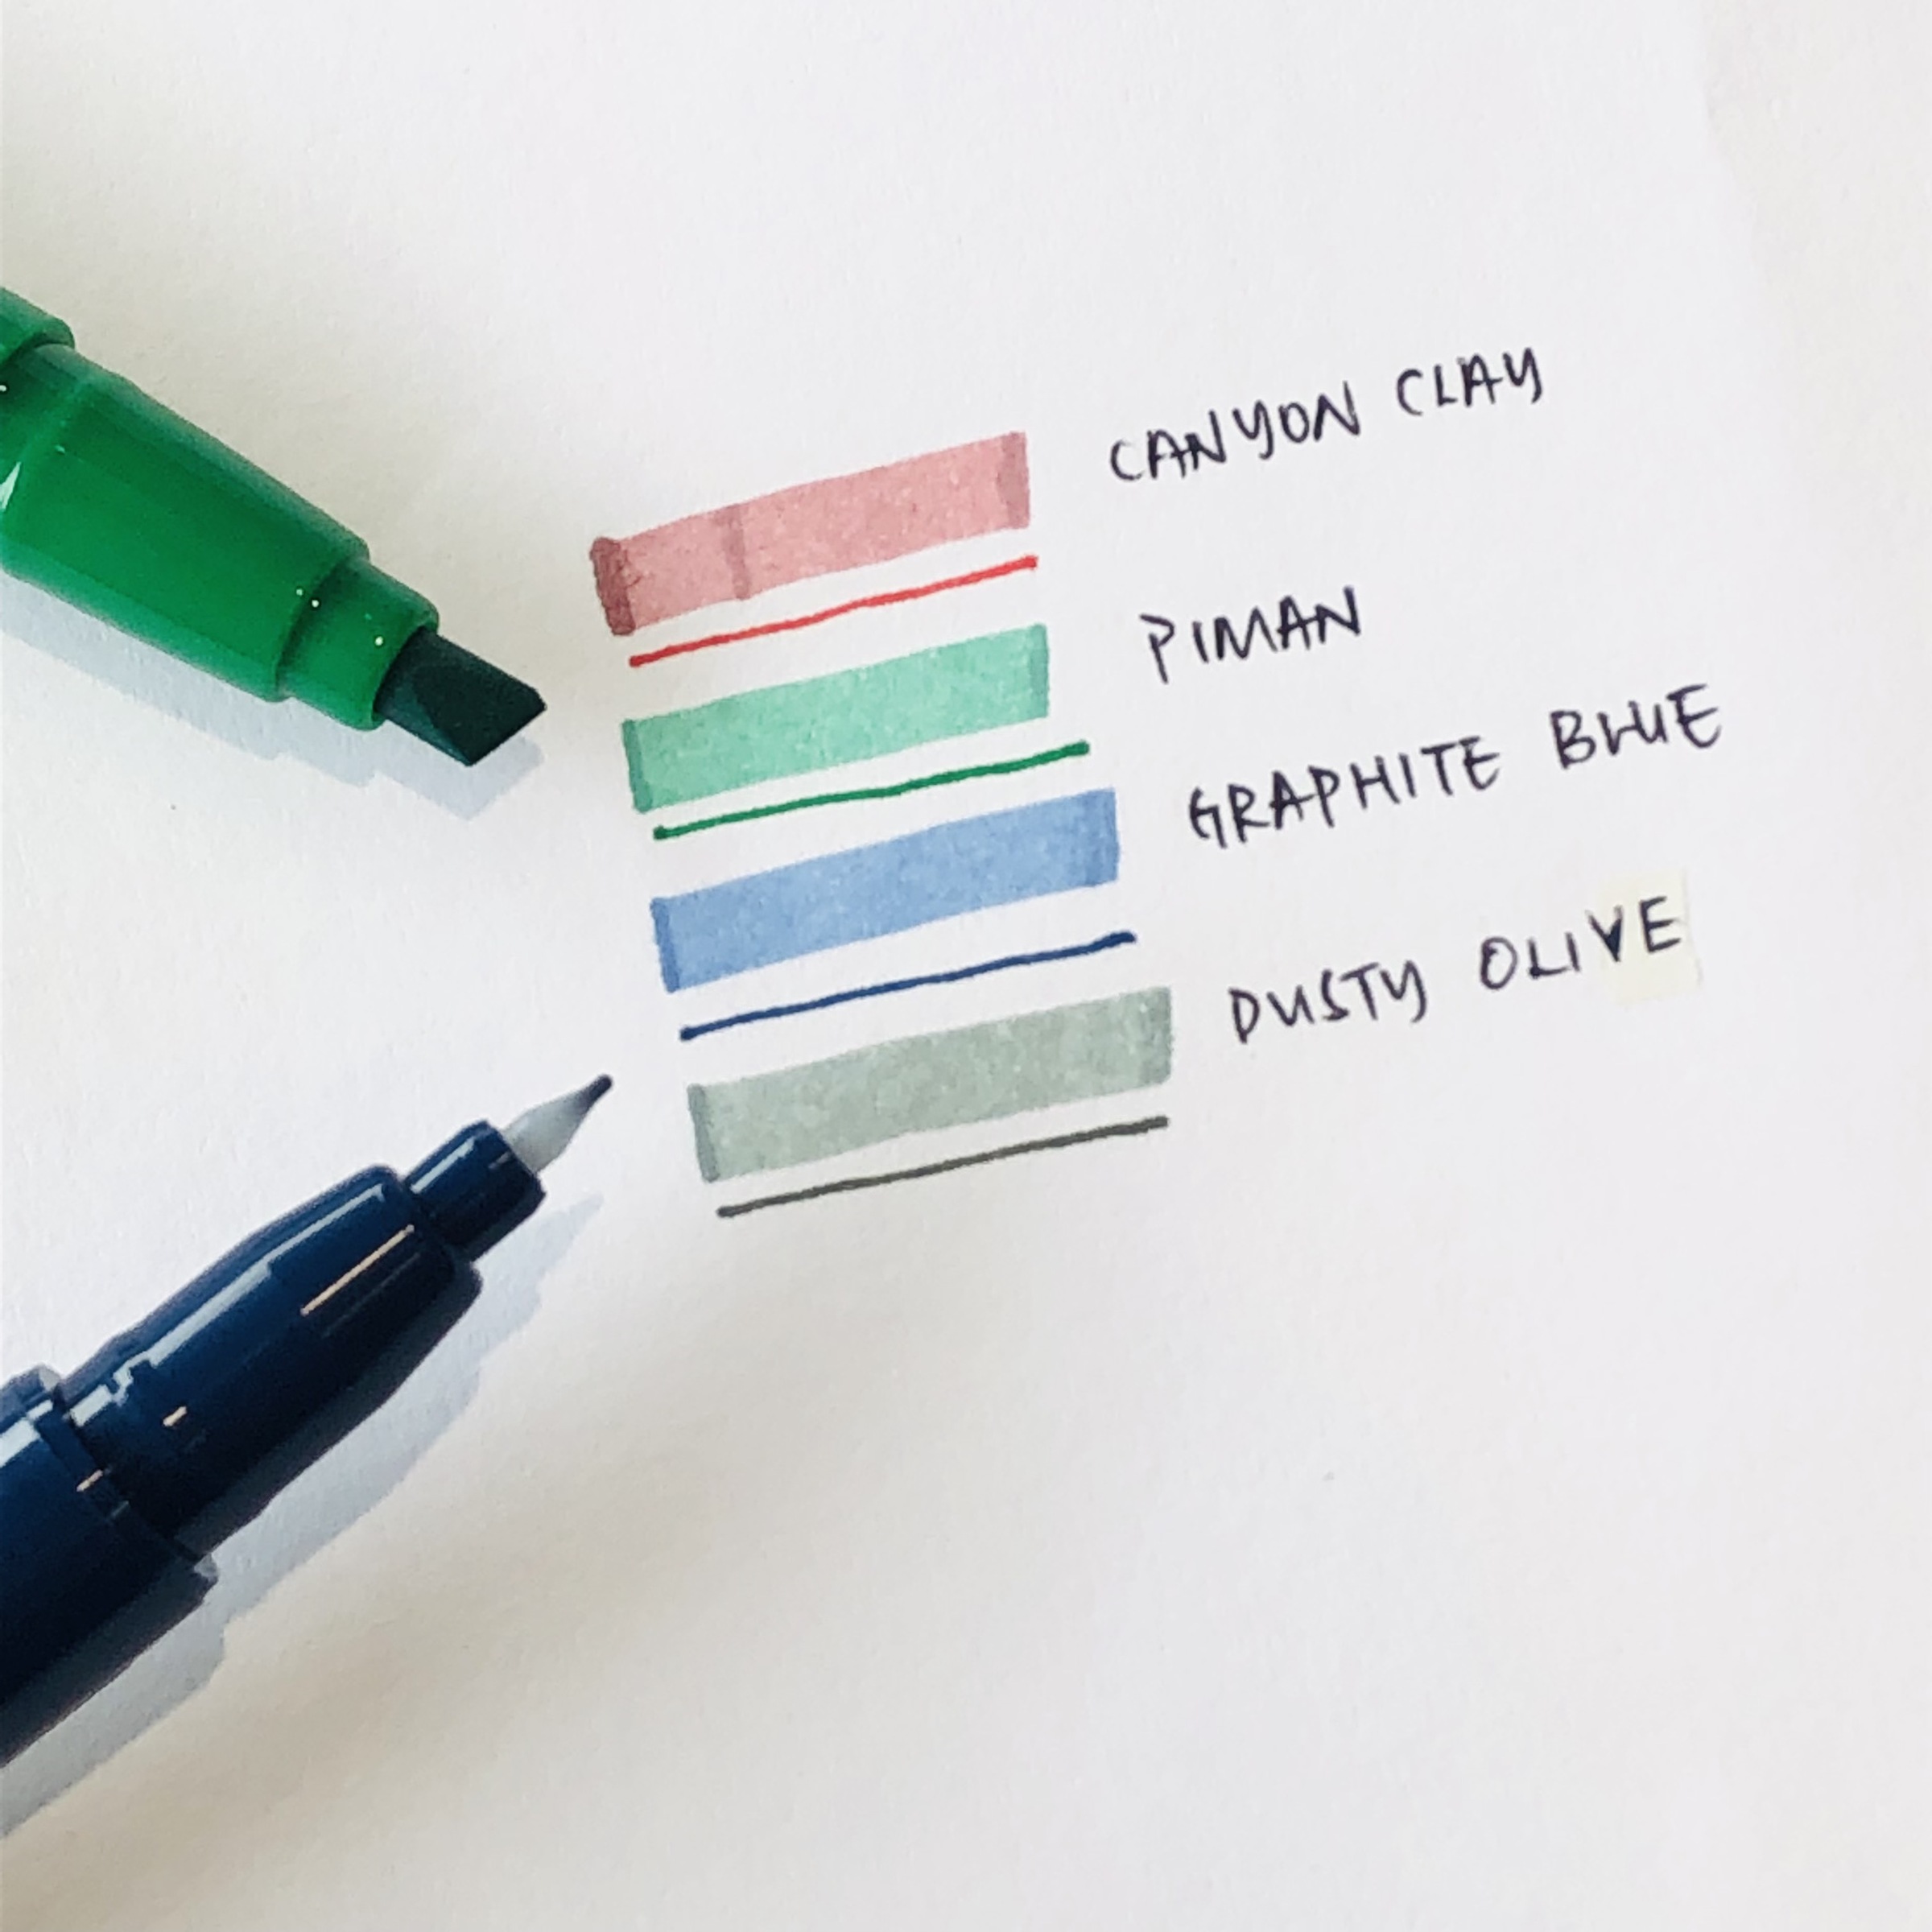 CANYON CLAY
PIMAN
GRAPHITE BLUE
DUSTY OLIVE